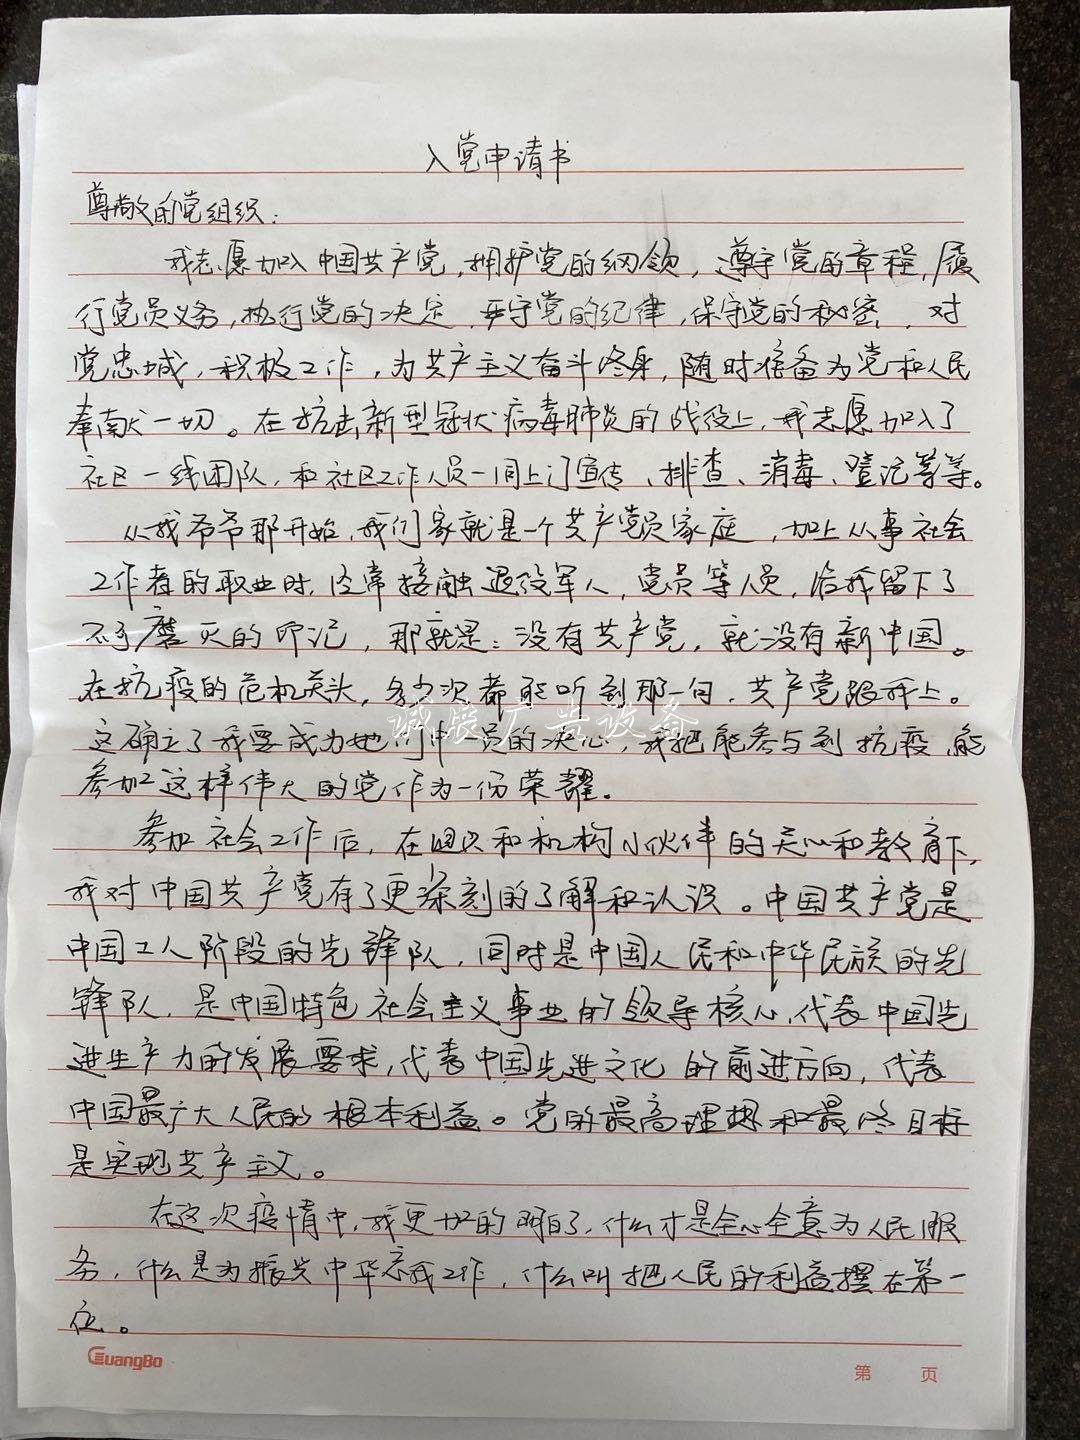 入党申请书
尊敬的党组织：
我志愿加入中国共产党，拥护党的纲领，遵守党的章程，履
行党员义务，执行党的决定，严守党的纪律，保守党的秘密，对
党忠城，积极工作，为共产主义奋斗终身，随时准备为党和人民
奉献一切。在抗击新型冠状病毒肺炎的战役上，我志愿加入了
社区一线团队，和社区工作人员一同上门宣传、排查、消毒、登记等等。
从我爷爷那开始，我们家就是一个共产党员家庭，加上从事社会
工作者的职业时，经常接触退役军人，党员等人员，给我留下了
不可磨灭的印记，那就是：没有共产党，就没有新中国。
在抗疫的危机关头，多少次都能听到那一句，共产党跟我上。
这确立了我要成为她们中一员的决心，我把能参与到抗疫，能
参加这样伟大的党作为一份荣耀。
参加社会工作后，在和机构小伙伴的关心和教育下，
我对中国共产党有了更深刻的了解和认识。中国共产党是
中国工人阶段的先锋队，同时是中国人民和中华民族的先
锋队，是中国特色社会主义事业的领导核心，代表中国先
进生产力的发展要求，代表中国先进文化的前进方向，代表
中国最广大人民的根本利益。党的最高理想和最终目标
是实现共产主义。
在这次疫情中，我更加的明白了，什么才是全心全意为人民服
务，什么是为振兴中华忘我工作，什么叫把人民的利益摆在第一
位。
诚展广告设备
GuangBo
第 页